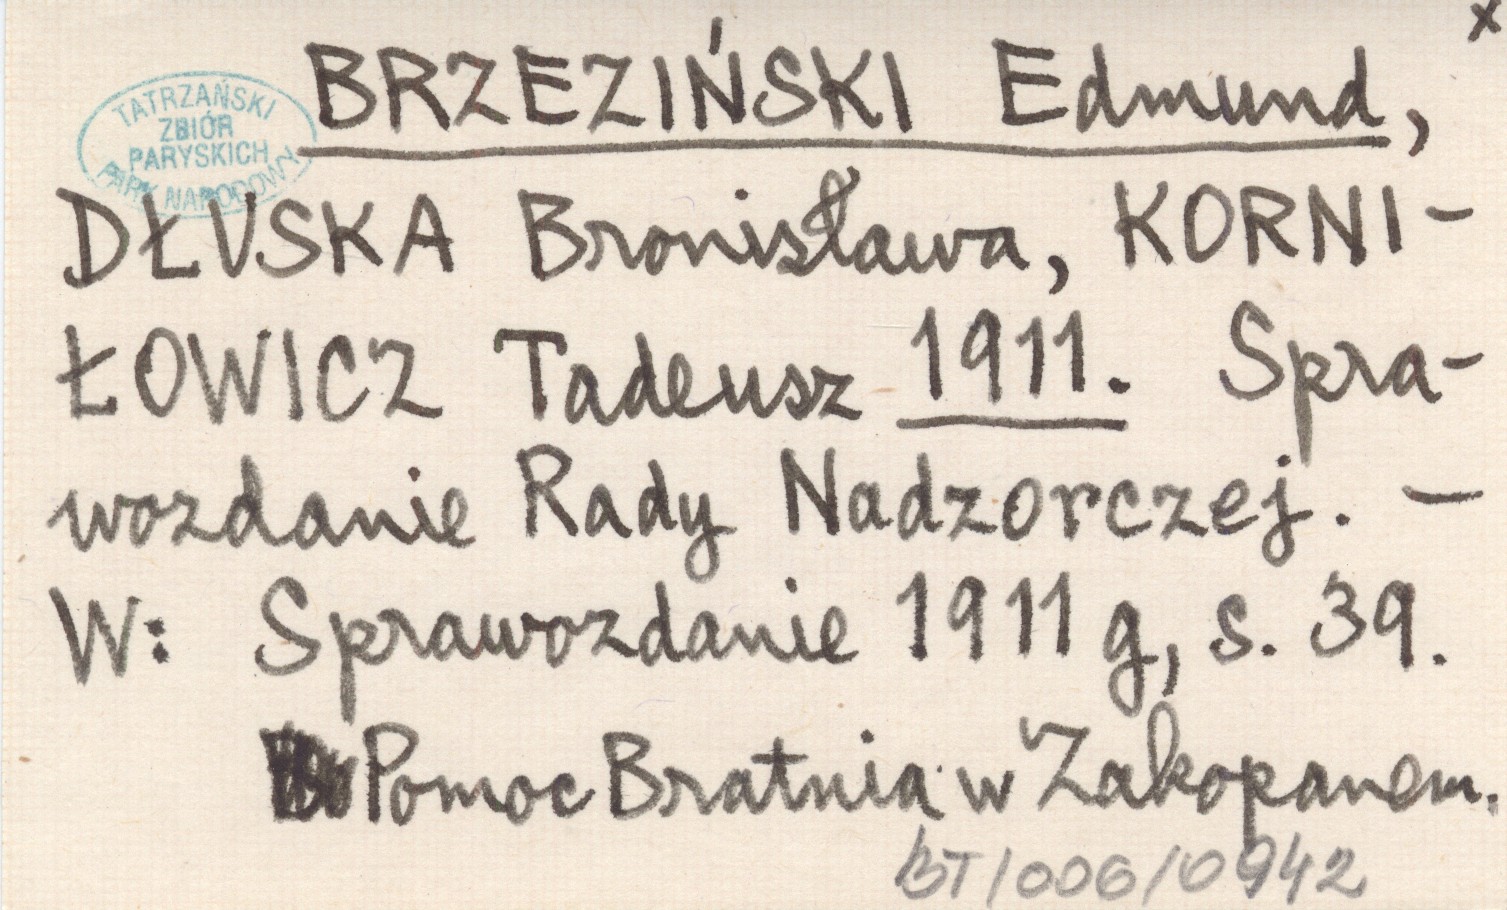 x
BRZEZIŃSKI Edmund,
TATRZAŃSKI
ZBIÓR
PARYSKICH
PARK NARODOWY
DŁUSKA Bronisława, KORNI-
ŁOWICZ Tadeusz 1911. Spra-
wozdanie Rady Nadzorczej. —
W: Sprawozdanie 1911 g, s. 39.
Pomoc Bratnia w Zakopanem.
BT/006/0942